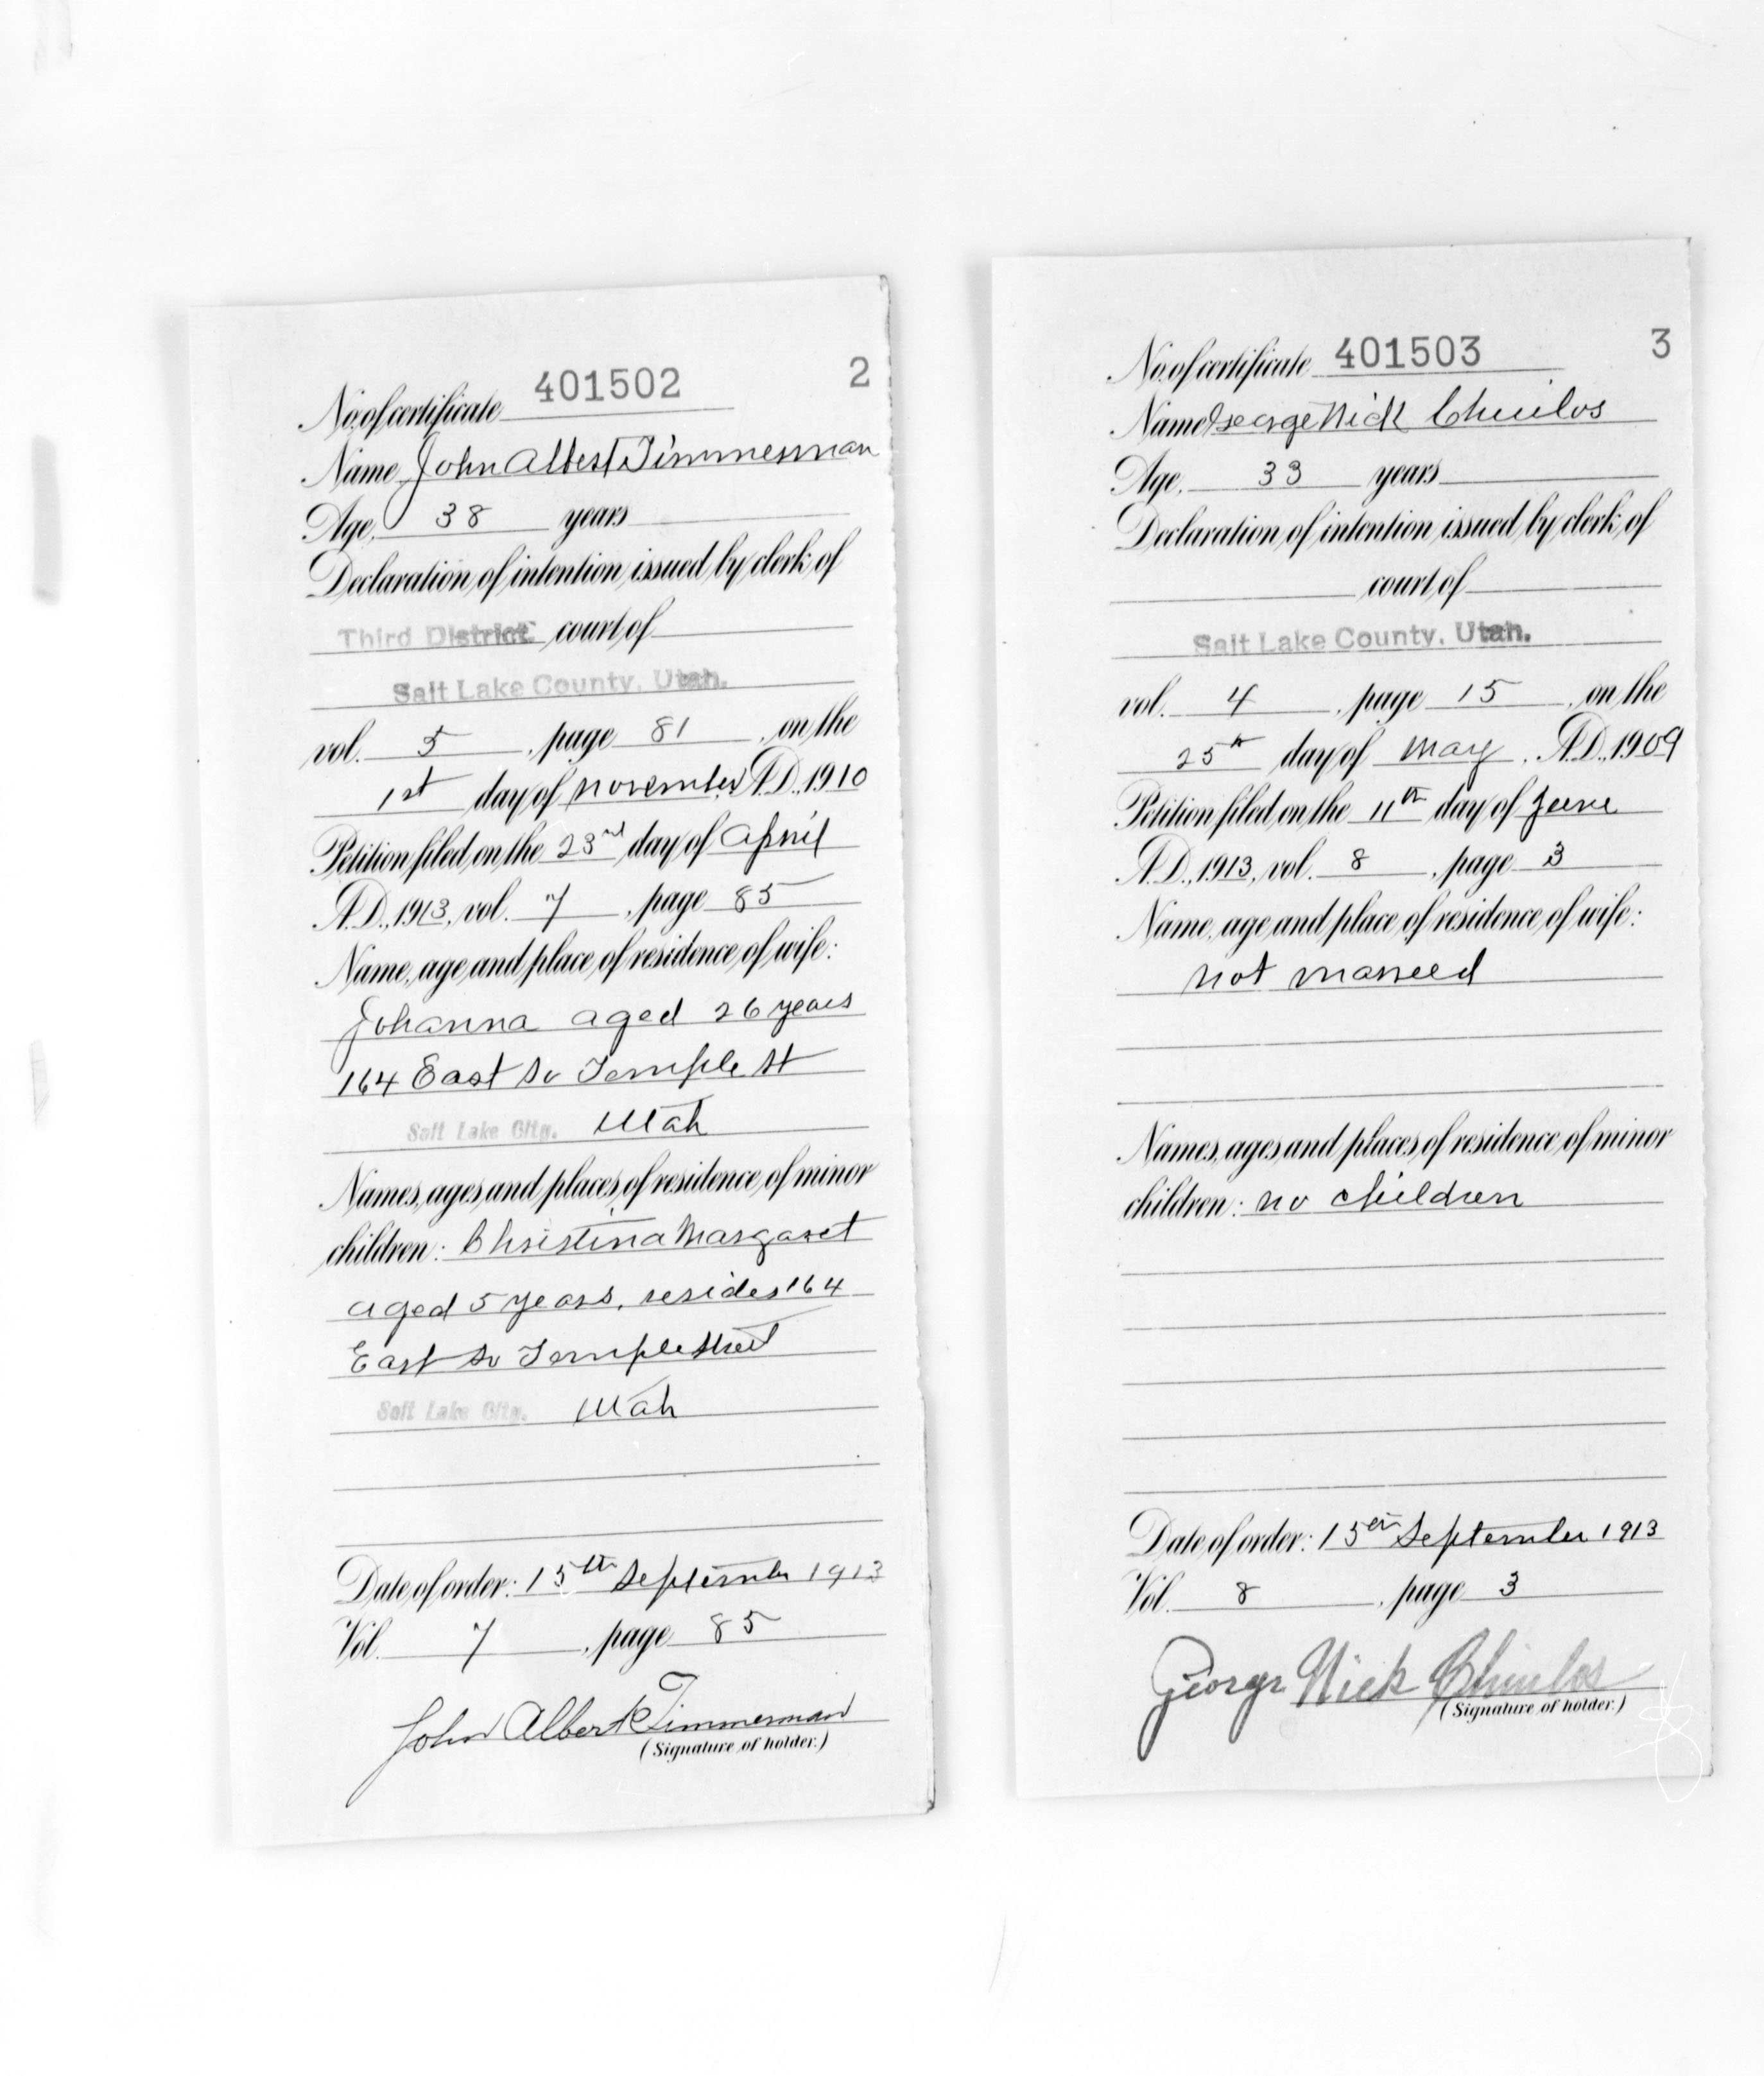 No. of certificate 401502 2
Name John Albert Timmerman
Age, 38 years
Declaration of intention issued by clerk of
Third District court of
Salt Lake County, Utah.
vol. 5, page 81, on the
1st day of November A.D., 1910
Petition filed on the 23rd day of April
A.D., 1913, vol. 7, page 85
Name, age and place of residence of wife:
Johanna aged 26 years
164 East So Temple St
Salt Lake City, Utah
Names, ages and places of residence of minor
children: Christina Margaret
aged 5 years, resides 164
East So Temple Street
Salt Lake City, Utah
Date of order: 15th September 1913
Vol. 7, page 85
John Albert Timmerman
(Signature of holder.)
No. of certificate 401503 3
Name George Nick Chuilos
Age, 33 years
Declaration of intention issued by clerk of
court of
Salt Lake County, Utah.
vol. 4, page 15, on the
25th day of May, A.D., 1909
Petition filed on the 11th day of June
A.D., 1913, vol. 8, page 3
Name, age and place of residence of wife:
not married
Names, ages and places of residence of minor
children: no children
Date of order: 15th September 1913
Vol. 8, page 3
George Nick Chuilos
(Signature of holder.)